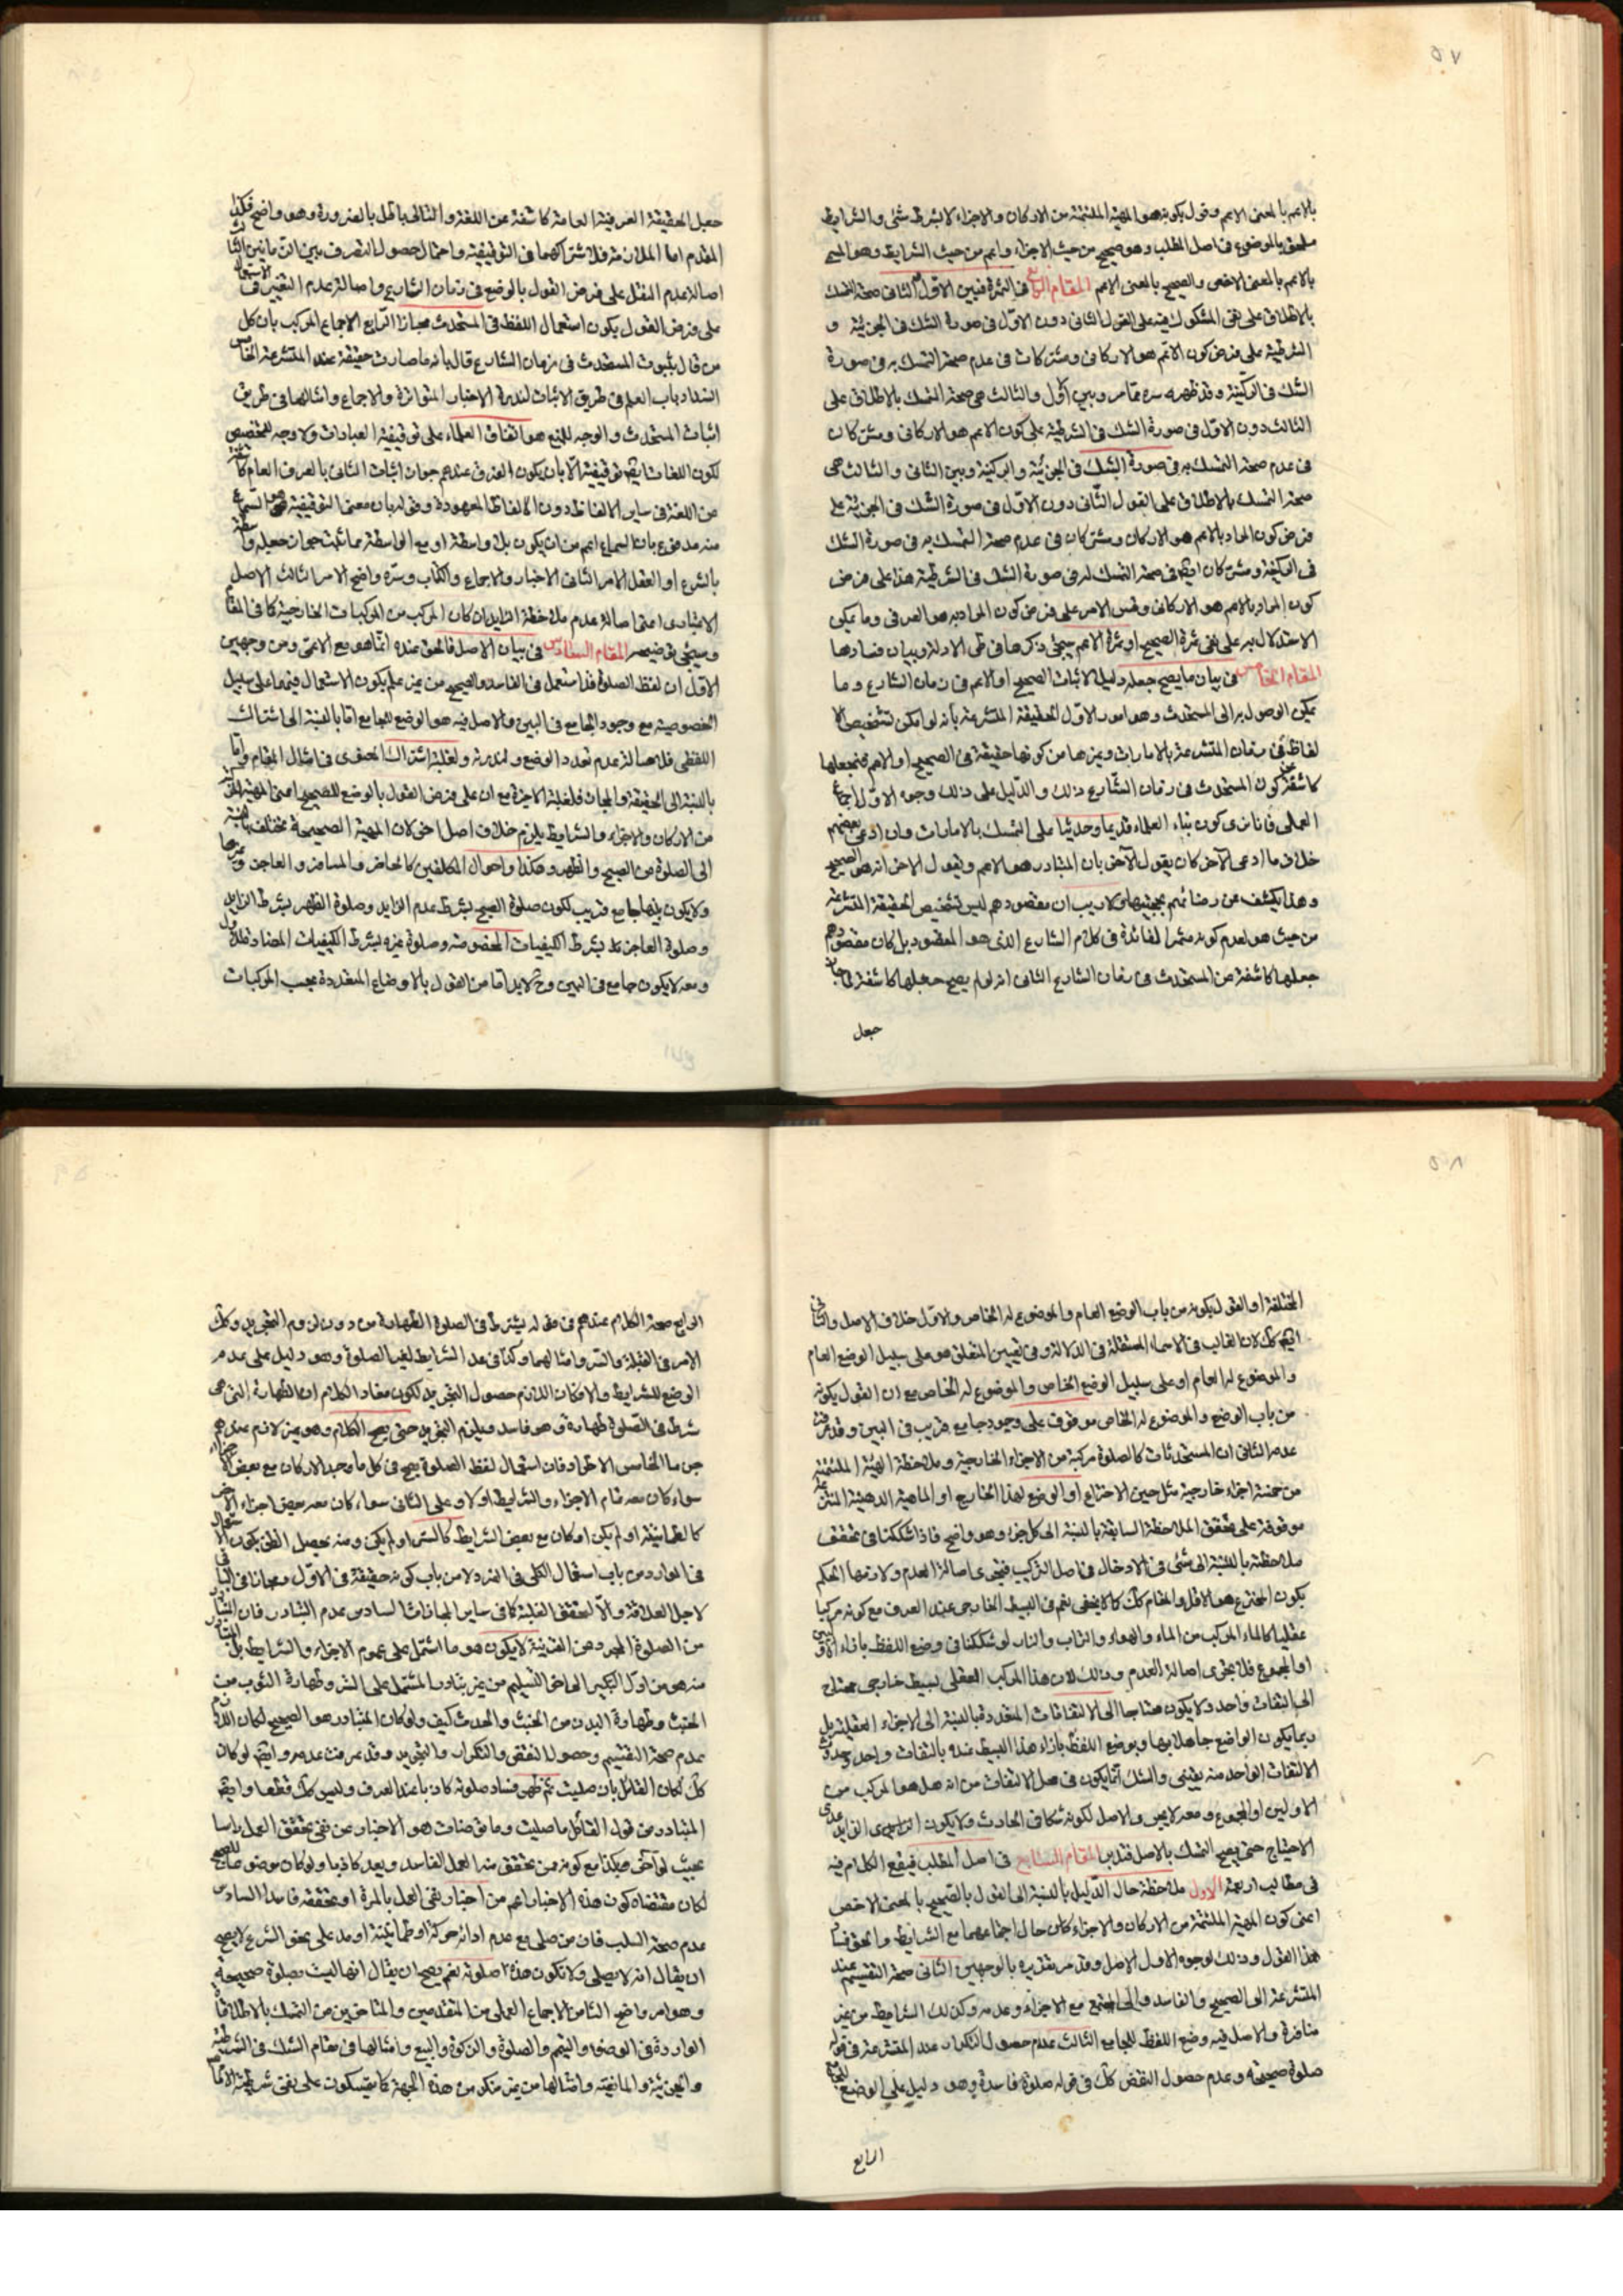 ٥٧
بالاعم بالمعنى الاعم وقول بكونه هو المهية الملتئمة من الاركان والاجزاء لا بشرط شئ والشرايط
ملحق بالموضوع فى اصل المطلب وهو صحيح من حيث الاجزاء واعم من حيث الشرايط وهو المسمى
بالاعم بالمعنى الاخص والصحيح بالمعنى الاعم المقام الرابع فى الثمرة فبين الاول والثانى صحة التمسك
بالاطلاق على نفى المشكوك فيه على القول الثانى دون الاول فى صورة الشك فى الجزئية و
الشرطية على فرض كون الاعم هو الاركانى ومشتركات فى عدم صحة التمسك به فى صورة
الشك فى الركنية وقد ظهر سره مما مر وبين الاول والثالث هى صحة التمسك بالاطلاق على
الثالث دون الاول فى صورة الشك فى الشرطية على كون الاعم هو الاركانى ومشتركان
فى عدم صحة التمسك به فى صورة الشك فى الجزئية والركنية وبين الثانى والثالث هى
صحة التمسك بالاطلاق على القول الثانى دون الاول فى صورة الشك فى الجزئية على
فرض كون المراد بالاعم هو الاركان ومشتركان فى عدم صحة التمسك به فى صورة الشك
فى الركنية ومشتركان ايضا فى صحة التمسك له فى صورة الشك فى الشرطية هذا على فرض
كون المراد بالاعم هو الاركانى وقس الامر على فرض كون المراد به هو العرفى وما يمكن
الاستدلال به على نفى ثمرة الصحيح او ثمرة الاعم سيجئ ذكرها فى طى الادلة وبيان فسادها
المقام الخامس فى بيان ما يصح جعله دليلا لاثبات الصحيح او الاعم فى زمان الشارع وما
يمكن الوصول به الى المستحدث وهو امور الاول الحقيقة المتشرعة بانه لو امكن تشخيص الا
لفاظ فى زمان المتشرعة بالامارات وغيرها من كونها حقيقة فى الصحيح او الاعم فنجعلها
كاشفة عن كون المستحدث فى زمان الشارع ذلك والدليل على ذلك وجوه الاول اجماع
العملى فانا نرى كون بناء العلماء قديما وحديثا على التمسك بالامارات وان ادعى بعضهم
خلاف ما ادعى الآخر كان يقول الآخر بان المتبادر هو الاعم ويقول الاخر انه هو الصحيح
وهذا يكشف عن رضائهم بحجيتها ولا ريب ان مقصودهم ليس تشخيص الحقيقة المتشرعة
من حيث هو لعدم كونه مثمرا لفائدة فى كلام الشارع الذى هو المقصود بل كان مقصودهم
جعلها كاشفة عن المستحدث فى زمان الشارع الثانى انه لو لم يصح جعلها كاشفة لما جاز
جعل
جعل الحقيقة العرفية العامة كاشفة عن اللغة والتالى باطل بالضرورة وهو واضح فكذا
المقدم اما الملازمة فلاشتراكهما فى التوقيفية واحتمال حصول التصرف فى البين الثالث
اصالة عدم النقل على فرض القول بالوضع فى زمان الشارع واصالة عدم التغيير فى الاستعمال
على فرض القول بكون استعمال اللفظ فى المستحدث مجازا الرابع الاجماع المركب بان كل
من قال بثبوت المستحدث فى زمان الشارع قال بانه ما صارت حقيقة عند المتشرعة الخامس
انسداد باب العلم فى طريق الاثبات لندرة الاخبار المتواترة والاجماع وامثالها فى طريق
اثبات المستحدث والوجه للمنع هو اتفاق العلماء على توقيفية العبادات ولا وجه للتخصيص
لكون اللغات ايضا توقيفية الا بان يكون الفرق عندهم جواز اثبات الثانى بالعرف العام
من اللغة فى ساير الالفاظ دون الالفاظ المعهودة وفى له بان معنى التوقيفية هو السماع
منه مدفوع بان السماع اعم من ان يكون بلا واسطة او مع الواسطة مما ثبت جواز جعله واسطة
بالشرع او العقل الامر الثانى الاخبار والاجماع والكتاب وسره واضح الامر الثالث الاصل
الاعتبارى اعنى اصالة عدم ملاحظة الزايد ان كان المركب من المركبات الخارجية كما فى المقام
وسيجئ توضيحه المقام السادس فى بيان الاصل فالحق عنده انما هو مع الاعمى ومن وجهين
الاول ان لفظ الصلوة قد استعمل فى الفاسد والصحيح من غير علم بكون الاستعمال فيهما على سبيل
الخصوصية مع وجود الجامع فى البين والاصل فيه هو الوضع للجامع اما بالنسبة الى اشتراك
اللفظى فلاصالة عدم تعدد الوضع ولندرته ولغلبة اشتراك المعنوى فى امثال المقام واما
بالنسبة الى الحقيقة والمجاز فلغلبة الاخيرة مع ان على فرض القول بالوضع للصحيح اعنى المهية
من الاركان والاجزاء والشرايط يلزم خلاف اصل اخر لان المهية الصحيحة مختلفة بالنسبة
الى الصلوة من الصبح والظهر وهكذا واحوال المكلفين كالحاضر والمسافر والعاجز وغيرها
ولا يكون بينها جامع قريب لكون صلوة الصبح بشرط عدم الزايد وصلوة الظهر بشرط الزايد
وصلوة العاجز بشرط الكيفيات المخصوصة وصلوة غيره بشرط الكيفيات المضادة للاول
ومعه لا يكون جامع فى البين وح لابد اما من القول بالاوضاع المتعددة بحسب المركبات
٥٨
المختلفة او القول بكونه من باب الوضع العام والموضوع له الخاص والاول خلاف الاصل والثانى
ايضا كك لان الغالب فى الاسماء المستقلة فى الدلالة وفى تعيين المتعلق هو على سبيل الوضع العام
والموضوع له العام او على سبيل الوضع الخاص والموضوع له الخاص مع ان القول بكونه
من باب الوضع والموضوع له الخاص موقوف على وجود جامع قريب فى البين وقد عرفت
عدمه الثانى ان المستحدثات كالصلوة مركبة من الاجزاء الخارجية وملاحظة الهيئة الملتئمة
من خمسة اجزاء خارجية مثل حين الاختراع او الوضع لهذا الخارج او الماهية الذهنية
موقوفة على تحقق الملاحظة السابقة بالنسبة الى كل جزء وهو واضح فاذا شككنا فى تحقق
ملاحظة بالنسبة الى شئ فى الادخال فى اصل التركيب فيجرى اصالة العدم ولازمها الحكم
بكون المخترع هو الاقل والمقام كك كما لا يخفى نعم فى البسيط الخارجى عند العرف مع كونه مركبا
عقليا كالماء المركب من الماء والهواء والتراب والنار لو شككنا فى وضع اللفظ بازاء الاولين
او المجموع فلا يجرى اصالة العدم وذلك لان هذا المركب العقلى لبسيط خارجى محتاج
الى التفات واحد ولا يكون محتاجا الى الالتفاتات المتعددة بالنسبة الى الاجزاء العقلية بل
ربما يكون الواضع جاهلا بها ويوضع اللفظ بازاء هذا البسيط عنده بالتفات واحد وحدوث
الالتفات الواحد منه يقينى والشك انما يكون فى محل الالتفات من انه هل هو المركب من
الاولين او المجموع ومعه لا يجرى الاصل لكونه شكا فى الحادث ولا يكون
الاحتياج حتى يصح التمسك بالاصل فتدبر المقام السابع فى اصل المطلب فيقع الكلام فيه
فى مطالب اربعة الاول ملاحظة حال الدليل بالنسبة الى القول بالصحيح بالمعنى الاخص
اعنى كون المهية الملتئمة من الاركان والاجزاء كان حال اجتماعهما مع الشرايط والحق فساد
هذا القول وذلك لوجوه الاول الاصل وقد مر تقديره بالوجهين الثانى صحة التقسيم عند
المتشرعة الى الصحيح والفاسد والى المجتمع مع الاجزاء وعدمه وكذلك الشرايط من غير
منافرة والاصل فيه وضع اللفظ للجامع الثالث عدم حصول التكرار عند المتشرعة فى قوله
صلوة صحيحة وعدم حصول النقض كك فى قوله صلوة فاسدة وهو دليل على الوضع للجامع
الرابع
الرابع صحة الكلام عندهم فى مقاله يشترط فى الصلوة الطهارة من دون لزوم التجريد وكك
الامر فى القبلة والستر وامثالهما وكذا فى عد الشرايط لغير الصلوة وهو دليل على عدم
الوضع للشرايط والا فكان اللازم حصول التجريد لكون مفاد الكلام ان الطهارة التى هى
شرط فى الصلوة طهارة وهو فاسد ويلزم التجريد حتى يصح الكلام وهو غير لازم عندهم
جزما الخامس الاطراد فان استعمال لفظ الصلوة يصح فى كل ما وجد الاركان مع بعض الاجزاء
سواء كان معه تمام الاجزاء والشرايط اولا وعلى الثانى سواء كان معه بعض اجزاء الاخر
كالطمانينة او لم يكن او كان مع بعض الشرايط كالستر او لم يكن ومنه يحصل الظن بكون الاستعمال
فى الموارد من باب استعمال الكلى فى الفرد ولا من باب كونه حقيقة فى الاول ومجازا فى الباقى
لاجل العلاقة والا لتحقق الغلبة كما فى ساير المجازات السادس عدم التبادر فان المتبادر
من الصلوة المجرد عن القرينة لا يكون هو ما اشتمل على عموم الاجزاء والشرايط بل المتبادر
منه هو من اول التكبير الى اخر التسليم من غير تبادر المشتمل على الستر وطهارة الثوب من
الخبث وطهارة البدن من الخبث والحدث كيف ولو كان المتبادر هو الصحيح لكان اللازم
عدم صحة التقسيم وحصول النقض والتكرار والتجريد وقد عرفت عدمه وايضا لو كان
كك لكان القائل بان صليت ثم ظهر فساد صلوته كاذبا عند العرف وليس كك قطعا وايضا
المتبادر من قول القائل ما صليت وما توضات هو الاخبار عن نفى تحقق العمل راسا
بحيث لو آخر هكذا مع كونه ممن تحقق منه العمل الفاسد ويعد كاذبا ولو كان موضوعا للصحيح
لكان مقتضاه كون هذه الاخبار اعم من اخبار نفى العمل بالمرة او تحققه فاسدا السادس
عدم صحة السلب فان من صلى مع عدم ادائه حركة او طمانينة او مد على نحو الشرع لا يصح
ان يقال انه لا يصلى ولا تكون هذه صلوته نعم يصح ان يقال انها ليست بصلوة صحيحة
وهو امر واضح الثامن الاجماع العملى من المتقدمين والمتاخرين من التمسك بالاطلاقات
الواردة فى الوضوء والتيمم والصلوة والزكوة والبيع وامثالها فى مقام الشك فى الشرطية
والجزئية والمانعية وامثالها من غير منكر من هذه الجهة كما يتمسكون على نفى شرطية